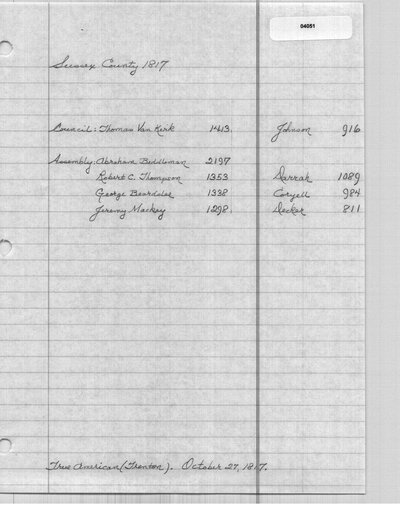 04051
Sussex County 1817
Council: Thomas Van Kirk 1413 Johnson 916
Assembly: Abraham Biddleman 2197
Robert C. Thompson 1353 Darrah 1089
George Beardslee 1338 Coryell 984
Jeremy Mackey 1298 Decker 811
True American (Trenton). October 27, 1817.